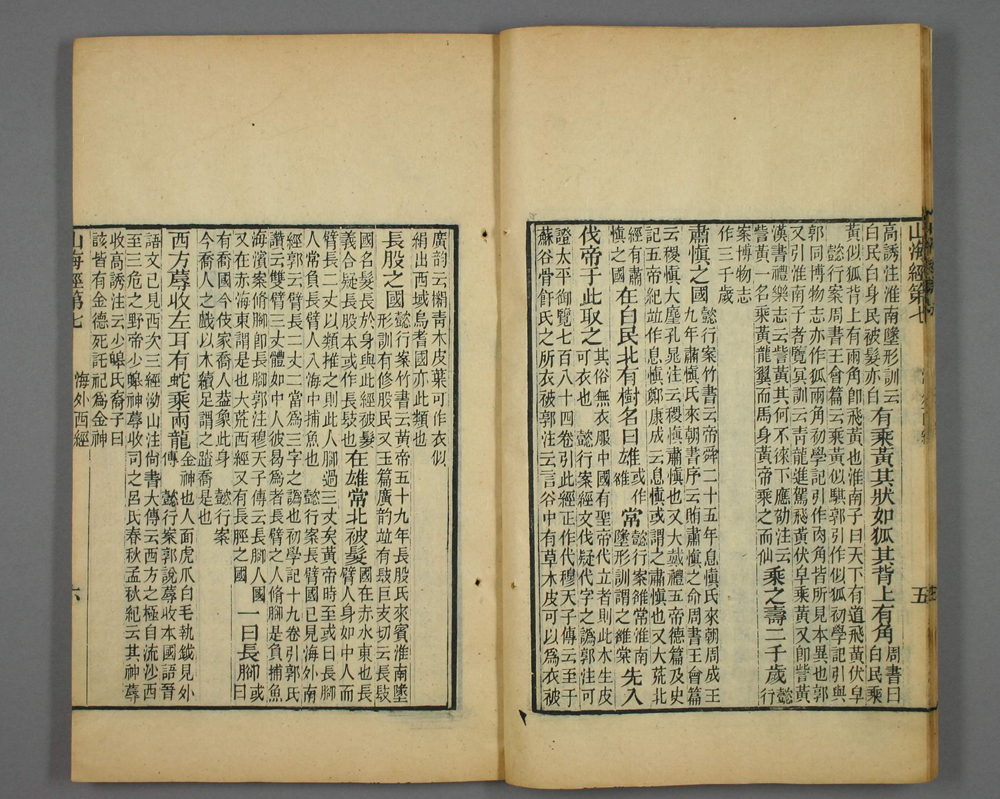 山海經第七 五
高誘注淮南墬形訓云
白民白身民被髮亦白
有乘黃其狀如狐其背上有角
周書曰
白民乘
黃似狐背上有兩角卽飛黃也淮南子曰天下有道飛黃伏皁
懿行案周書王會篇云乘黃似騏郭引作似狐初學記引與
郭同博物志亦作狐兩角初學記引作肉角皆所見本異也郭
又引淮南子者覽冥訓云青龍進駕飛黃伏皁乘黃又卽訾黃
漢書禮樂志云訾黃其何不徠下應劭注云
訾黃一名乘黃龍翼而馬身黃帝乘之而仙
乘之壽二千歲
懿
行
案博物志
作三千歲
肅愼之國
懿行案竹書云帝舜二十五年息愼氏來朝周成王
九年肅愼氏來朝書序云賄肅愼之命周書王會篇
云稷愼大麈孔晁注云稷愼肅愼也又大戴禮五帝德篇及史
記五帝紀竝作息愼鄭康成云息愼或謂之肅愼也又大荒北
經有肅
愼之國
在白民北有樹名曰雄
或作
雒
常
懿行案雒常淮南
墬形訓謂之雒棠
先入
伐帝于此取之
其俗無衣服中國有聖帝代立者則此木生皮
可衣也 懿行案經文伐疑代字之譌郭注可
證太平御覽七百八十四卷引此經正作代穆天子傳云至于
蘇谷骨飦氏之所衣被郭注云言谷中有草木皮可以爲衣被
廣韵云 青木皮葉可作衣似
絹出西域烏耆國亦此類也
長股之國
懿行案竹書云黃帝五十九年長股氏來賓淮南墬
形訓有修股民又玉篇廣韵竝有镻巨支切云長镻
國名髮長於身與此經被髮
義合疑長股本或作長镻也
在雄常北被髮
國在赤水東也長
臂人身如中人而
臂長二丈以類推之則此人脚過三丈矣黃帝時至或曰長脚
人常負長臂人入海中捕魚也 懿行案長臂國已見海外南
經郭云臂長二丈二當爲三字之譌也初學記十九卷引郭氏
讚云雙臂三丈體如中人彼曷爲者長臂之人脩脚是負捕魚
海濱案脩脚卽長脚郭注穆天子傳云長脚人國
又在赤海東謂是也大荒西經又有長脛之國
一曰長脚
或
曰
有喬國今伎家喬人葢象此身 懿行案
今喬人之戲以木續足謂之蹹喬是也
西方蓐收左耳有蛇乘兩龍
金神也人面虎爪白毛執鉞見外
傳 懿行案郭說蓐收本國語晉
語文已見西次三經泑山注尙書大傳云西方之極自流沙西
至三危之野帝少皞神蓐收司之呂氏春秋孟秋紀云其神蓐
收高誘注云少皞氏裔子曰
該皆有金德死託祀爲金神
山海經第七 海外西經 六